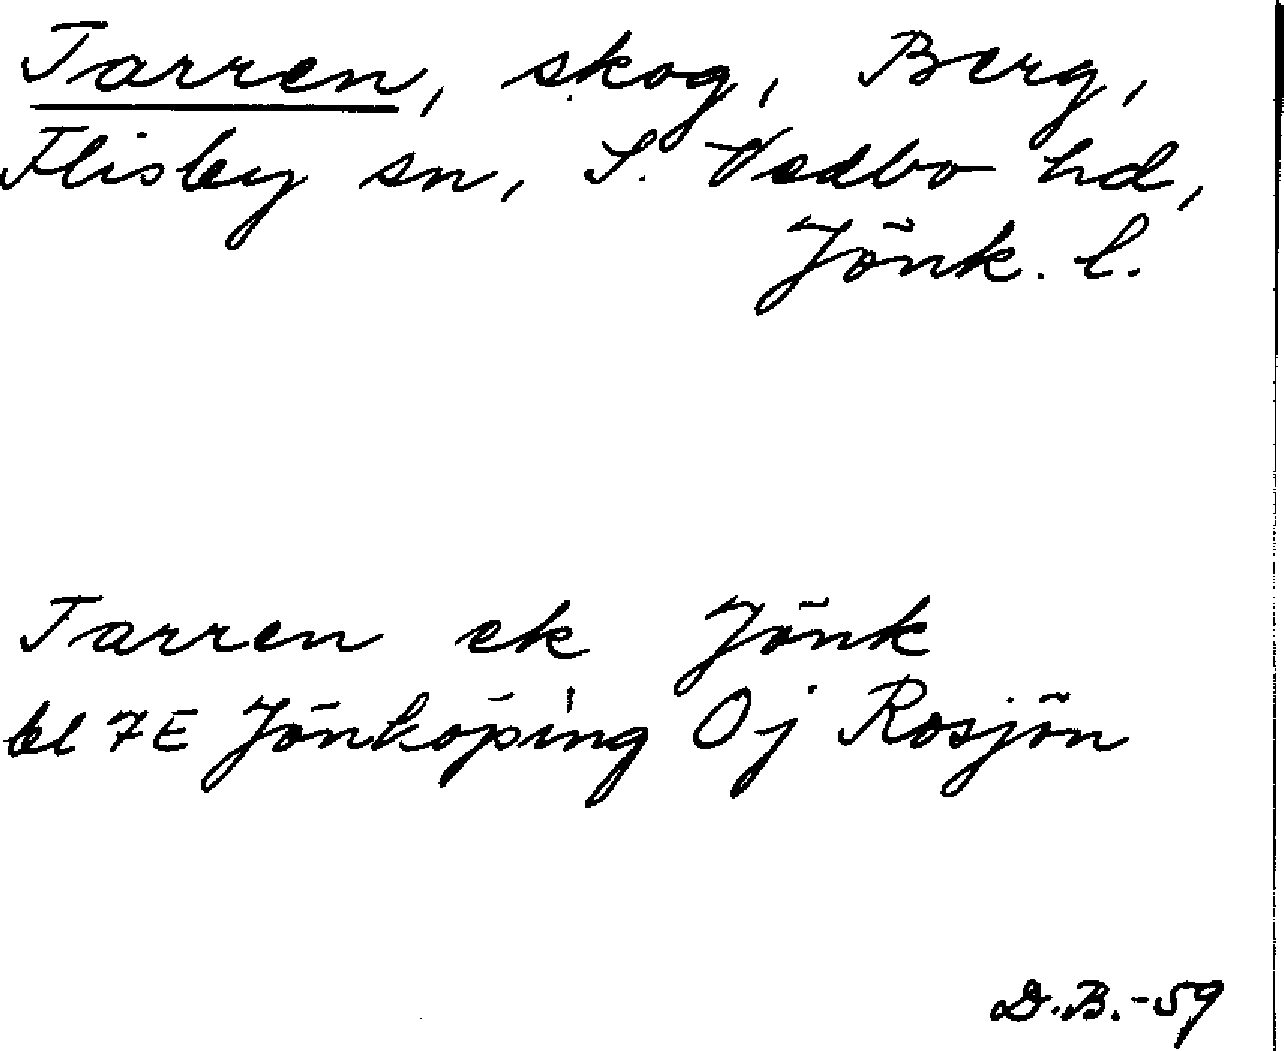 Tarren, skog, Berg,
Flisby sn, S. Vedbo hd,
Jönk. l.
Tarren ek Jönk
bl 7E Jönköping Oj Rosjön
D.B.-59